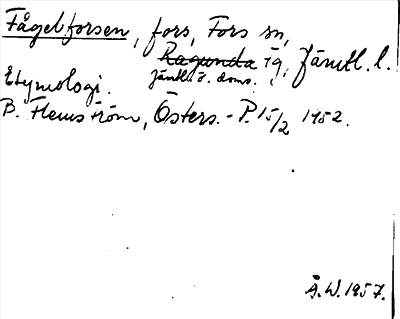 Fågelforsen, fors, Fors sn,
Ragunda tg, Jämtl. l.
Jämtl. ö. doms.
Etymologi.
B. Flemström, Östers. - P. 15/2 1952.
Å.W. 1957.